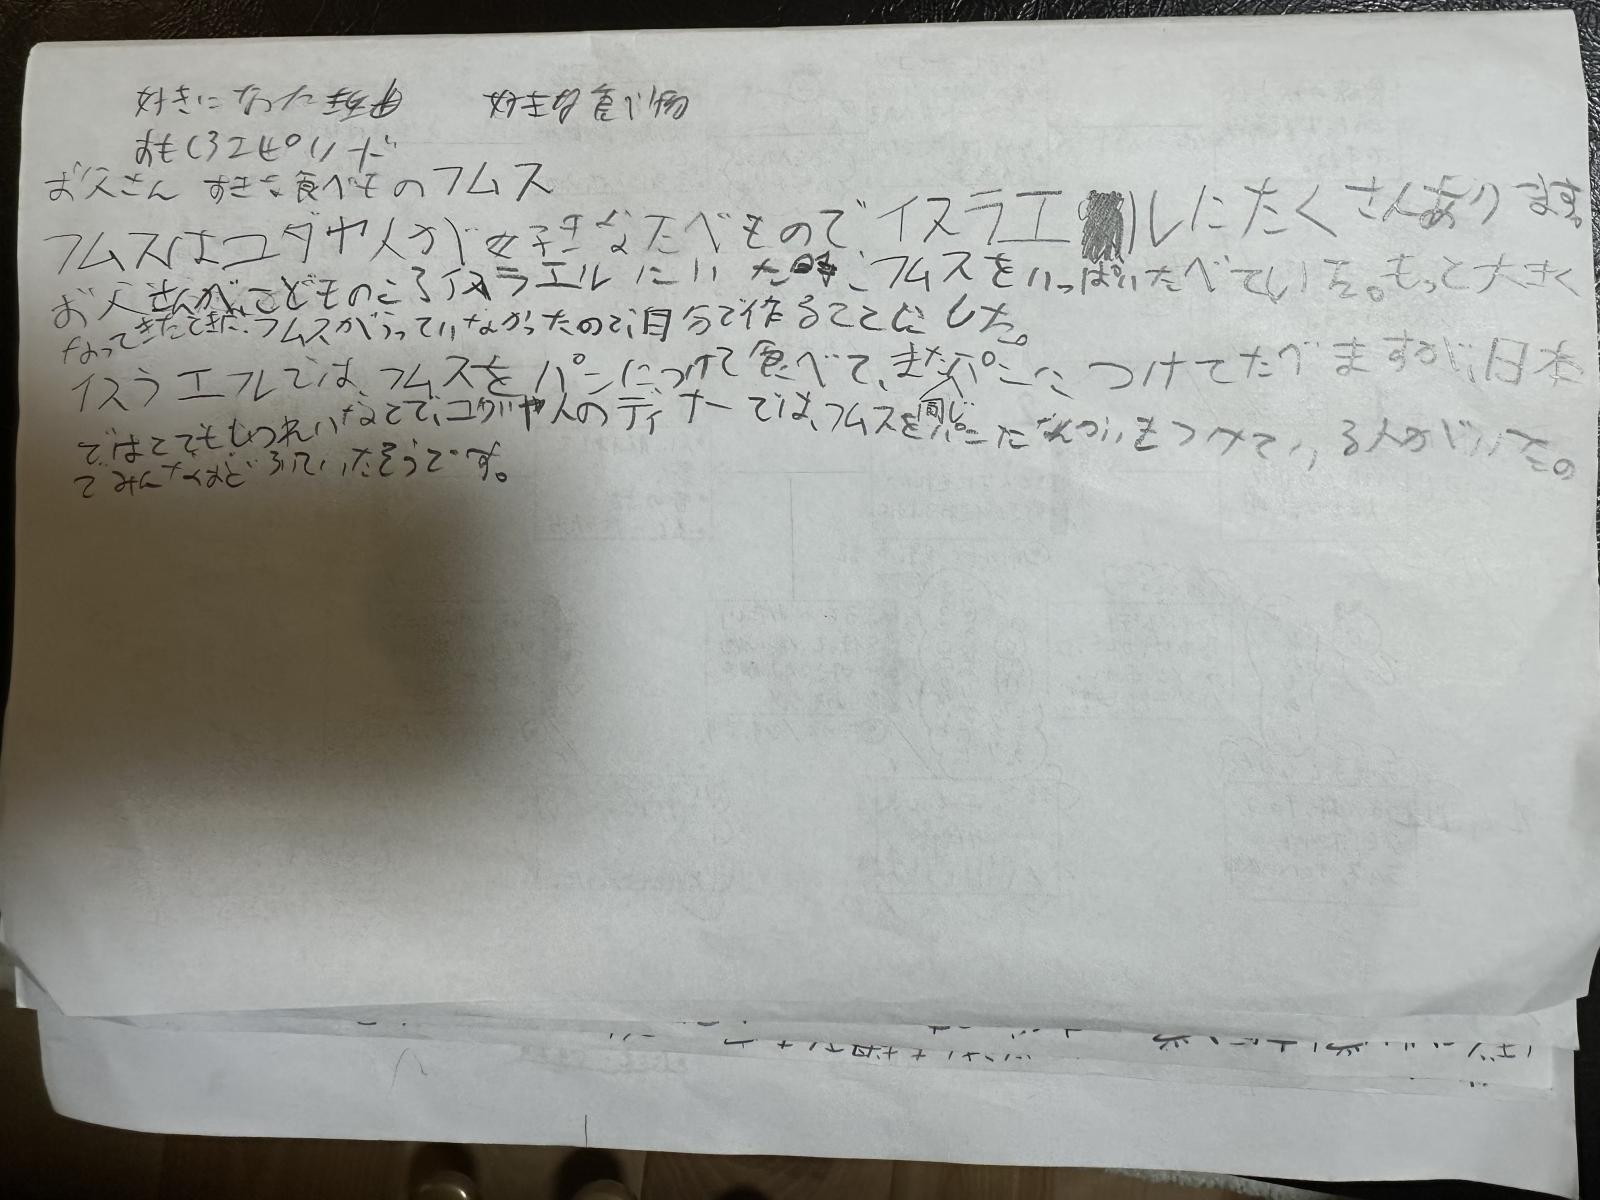 好きになった理由　好きな食べ物
おもしろエピソード
お父さん すきな食べもの フムス
フムスはユダヤ人が好きなたべもので、イスラエルにたくさんあります。
お父さんが、こどものころイスラエルにいた時、フムスをいっぱいたべていた。もっと大きく
なってきたときに、フムスがうっていなかったので、自分で作ることにした。
イスラエルでは、フムスをパンにつけて食べて、またパンにつけてたべますが、日本
ではとてもしつれいなことで、ユダヤ人のディナーでは、フムスを同じパンになんかいもつけている人がいたの
でみんなおどろいていたそうです。